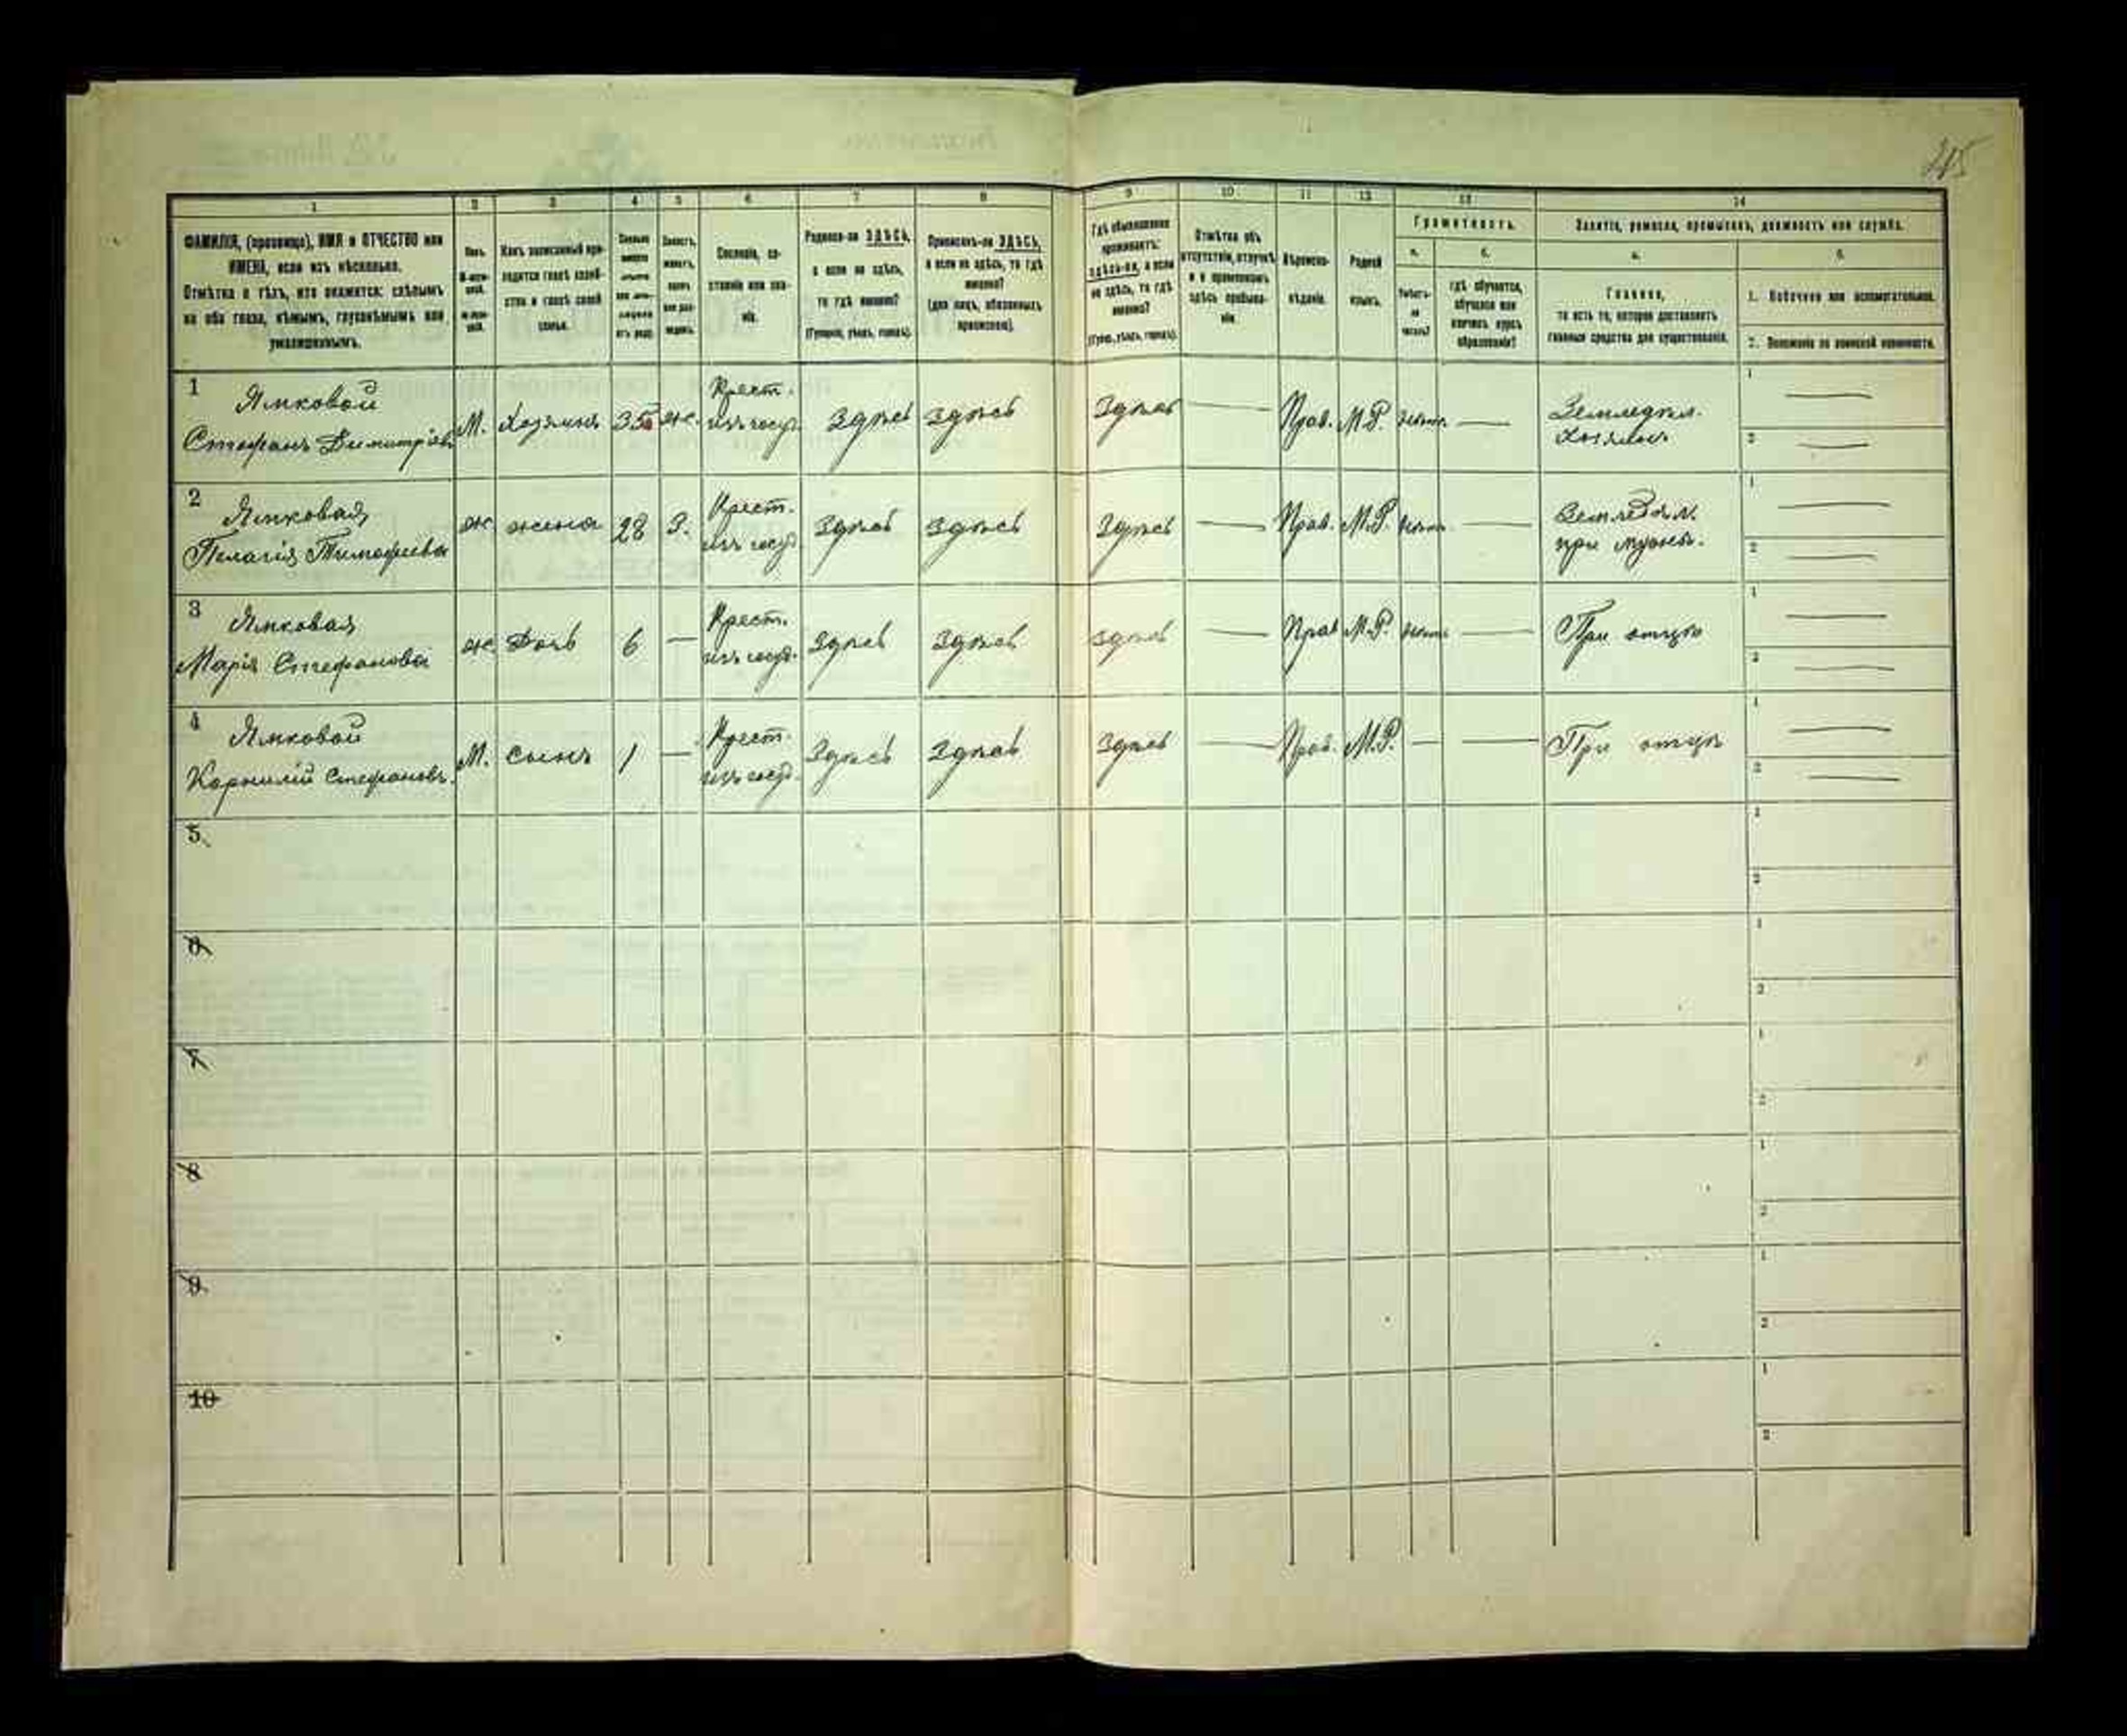 1
2
3
4
5
6
7
8
9
10
11
12
13
14
ФАМИЛІЯ, (прозвище), ИМЯ и ОТЧЕСТВО или
ИМЕНА, если ихъ нѣсколько.
Отмѣтка о тѣхъ, кто окажется: слѣпымъ
на оба глаза, нѣмымъ, глухонѣмымъ или
умалишеннымъ.
Полъ.
Какъ записанный при-
ходится главѣ хозяй-
ства и главѣ своей
семьи.
Сословіе, со-
стояніе или зва-
ніе.
Родился-ли ЗДѢСЬ,
а если не здѣсь,
то гдѣ именно?
(Губернія, уѣздъ, городъ).
Приписанъ-ли ЗДѢСЬ,
а если не здѣсь, то гдѣ
именно?
(для лицъ, обязанныхъ
припиской).
Гдѣ обыкновенно
проживаетъ:
здѣсь-ли, а если
не здѣсь, то гдѣ
именно?
(Губер., уѣздъ, городъ).
Отмѣтка объ
отсутствіи, отлучкѣ
и о временномъ
здѣсь пребыва-
ніи.
Вѣроиспо-
вѣданіе.
Родной
языкъ.
Грамотность.
а.
б.
Умѣетъ-
ли
читать?
гдѣ обучается,
обучался или
кончилъ курсъ
образованія?
Занятіе, ремесло, промыселъ, должность или служба.
а.
б.
Главное,
то есть то, которое доставляетъ
главныя средства для существованія.
1. Побочное или вспомогательное.
2. Положеніе по воинской повинности.
1
Ямковой
Стефанъ Димитріевъ
М. Хозяинъ 35 ж. Крест. изъ госуд. Здѣсь Здѣсь Здѣсь — Прав. М.Р. нѣтъ — Земледѣл. Хозяинъ
1 —
2 —
2
Ямковая
Пелагія Тимофеева
ж жена 28 З. Крест. изъ госуд. Здѣсь Здѣсь Здѣсь — Прав. М.Р. нѣтъ — Земледѣл. при мужѣ.
1 —
2 —
3
Ямковая
Марія Стефанова
ж Дочь 6 — Крест. изъ госуд. Здѣсь Здѣсь Здѣсь — Прав М.Р. нѣтъ — При отцѣ
1 —
2 —
4
Ямковой
Корнилій Стефановъ.
М. Сынъ 1 — Крест. изъ госуд. Здѣсь Здѣсь Здѣсь — Прав. М.Р. — — При отцѣ
1 —
2 —
5
1
2
6
1
2
7
1
2
8
1
2
9
1
2
10
1
2